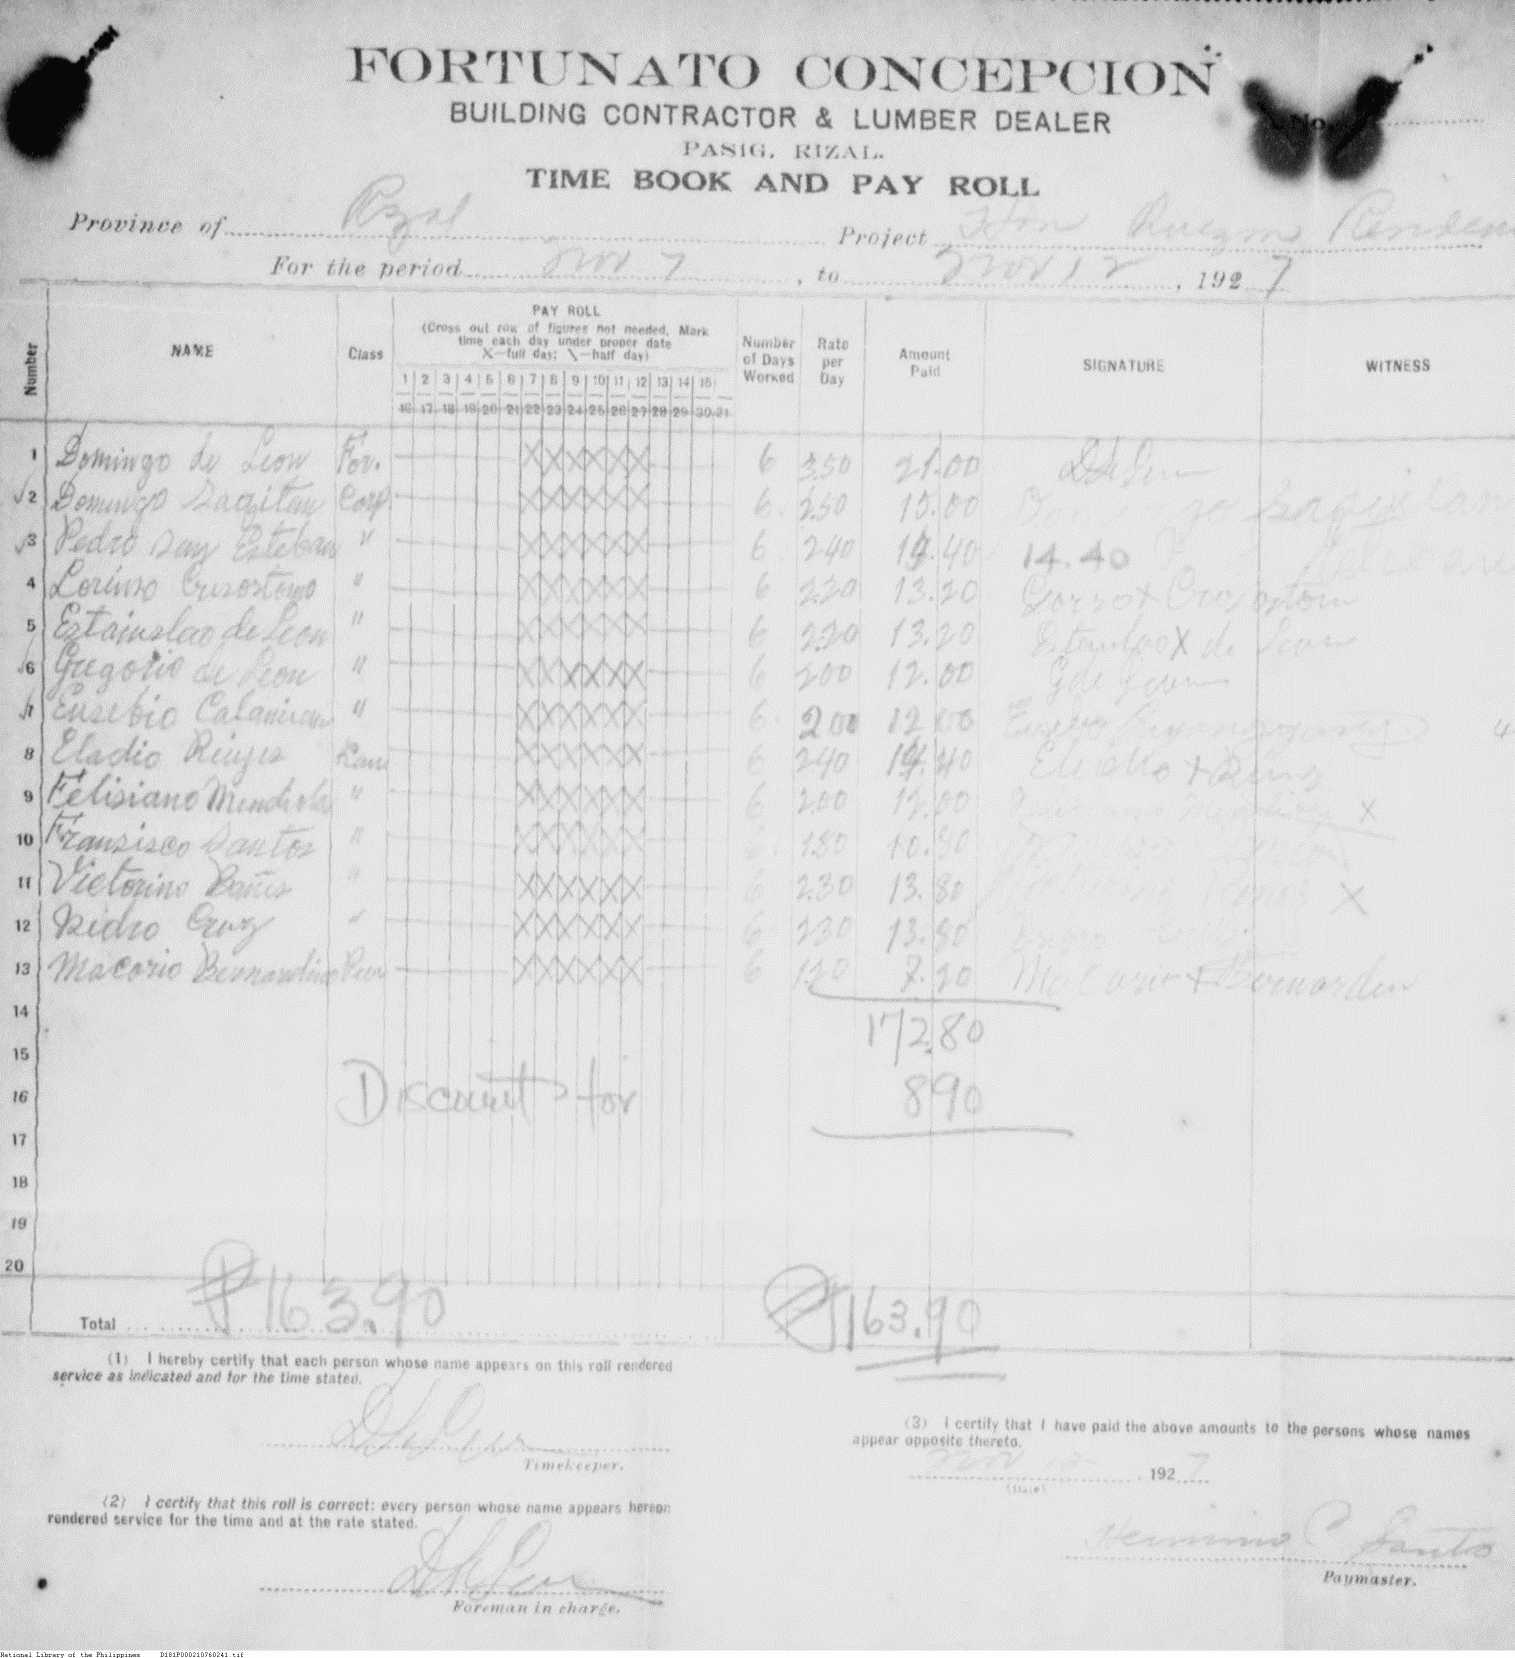 FORTUNATO CONCEPCION
BUILDING CONTRACTOR & LUMBER DEALER
No.
PASIG, RIZAL.
TIME BOOK AND PAY ROLL
Province of Rizal Project Hon
For the period Nov 7, to Nov 12, 1927
Number NAME Class PAY ROLL Number of Days Worked Rate per Day Amount Paid SIGNATURE WITNESS
(Cross out row of figures not needed, Mark
time each day under proper date
X—full day; \—half day)
1 2 3 4 5 6 7 8 9 10 11 12 13 14 15
16 17 18 19 20 21 22 23 24 25 26 27 28 29 30 31
1 Domingo de Leon For. X X X X X X 6 3.50 21.00
2 Domingo Sagitan Corp. X X X X X X 6 2.50 15.00 Sagitan
3 Pedro San Esteban " X X X X X X 6 2.40 14.40 14.40
4 Lorinso Crisostomo " X X X X X X 6 2.20 13.20
5 Estainslao de Leon " X X X X X X 6 2.20 13.20 X de Leon
6 Gregorio de Leon " X X X X X X 6 2.00 12.00
7 Eusebio " X X X X X X 6 2.00 12.00
8 Eladio Reyes X X X X X X 6 2.40 14.40 Eladio + Reyes
9 Felisiano Mendiola " X X X X X X 6 2.00 12.00 X
10 Fransisco Santos " X X X X X X 6 1.80 10.80
11 Victorino " X X X X X X 6 2.30 13.80 X
12 Isidro Cruz " X X X X X X 6 2.30 13.80
13 Macario Bernardino X X X X X X 6 1.20 7.20 Macario +
14 172.80
15
16 Discount for 8.90
17
18
19
20
Total ₱163.90 ₱163.90
(1) I hereby certify that each person whose name appears on this roll rendered
service as indicated and for the time stated.
Timekeeper.
(2) I certify that this roll is correct: every person whose name appears hereon
rendered service for the time and at the rate stated.
Foreman in charge.
(3) I certify that I have paid the above amounts to the persons whose names
appear opposite thereto.
Nov 12, 1927
(Date)
Herminio C Santos
Paymaster.
National Library of the Philippines D181P000210760241.tif